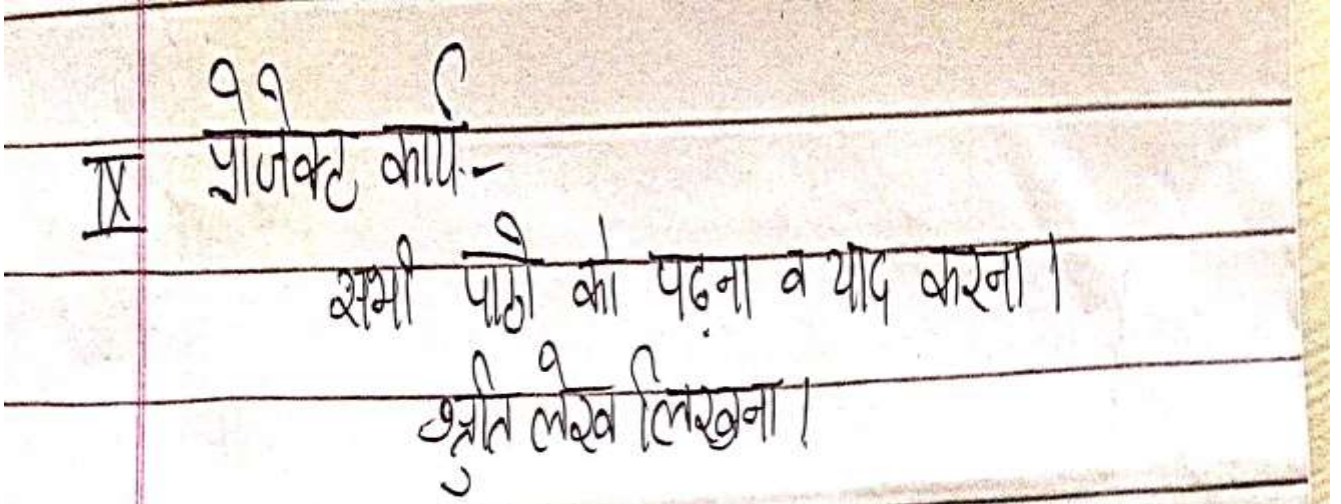 IX प्रोजेक्ट कार्य:-
सभी पाठों को पढ़ना व याद करना।
श्रुति लेख लिखना।